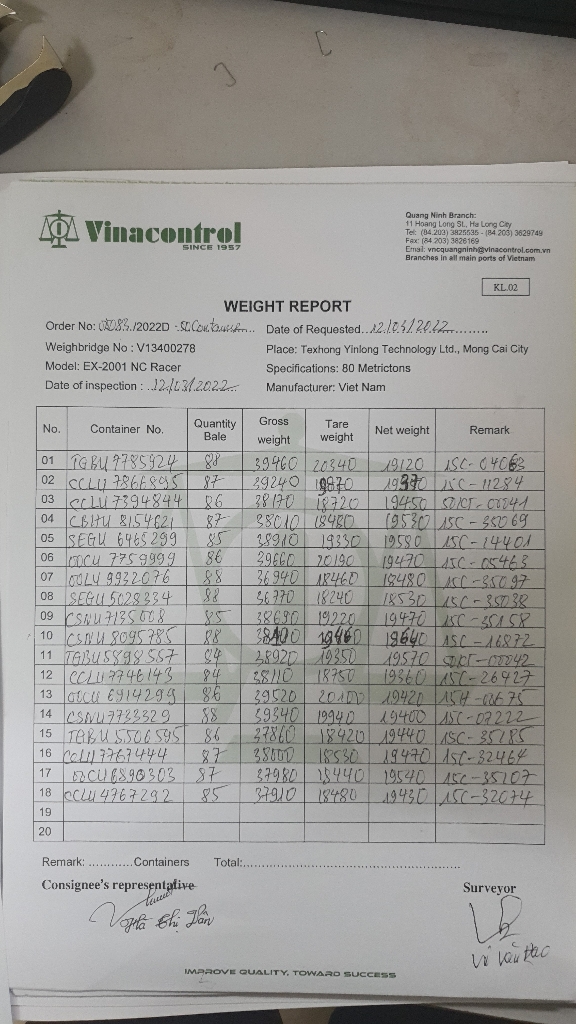 Vinacontrol
SINCE 1957
Quang Ninh Branch:
11 Hoang Long St., Ha Long City
Tel: (84.203) 3825535 - (84.203) 3629749
Fax: (84.203) 3826169
Email: vncquangninh@vinacontrol.com.vn
Branches in all main ports of Vietnam
KL.02
WEIGHT REPORT
Order No: /2022D Date of Requested...12/03/2022.........
Weighbridge No : V13400278 Place: Texhong Yinlong Technology Ltd., Mong Cai City
Model: EX-2001 NC Racer Specifications: 80 Metrictons
Date of inspection : 12/03/2022 Manufacturer: Viet Nam
No. Container No. Quantity Bale Gross weight Tare weight Net weight Remark
01 TGBU 7785924 88 39460 20340 19120 15C-04063
02 CCLU 7866895 87 39240 19870 19370 15C-11284
03 CCLU 7394844 86 38170 18720 19450 50KT-00041
04 CBHU 8154621 87 38010 18480 19530 15C-35069
05 SEGU 6465299 85 38910 19330 19580 15C-14401
06 OOCU 7759999 86 39660 20190 19470 15C-05463
07 OOLU 9932076 88 36940 18460 18480 15C-35097
08 SEGU 5028334 88 36770 18240 18530 15C-35038
09 CSNU 7135008 85 38690 19220 19470 15C-35158
10 CSNU 8095785 88 19460 18640 15C-16872
11 TGBU 5898557 84 38920 19350 19570 50KT-00042
12 CCLU 7746143 84 38110 18750 19360 15C-26427
13 OOCU 6914299 86 39520 20100 19420 15H-00675
14 CSNU 7733329 88 39340 19940 19400 15C-07222
15 TGBU 5506595 86 37860 18420 19440 15C-35185
16 CCLU 7767444 87 38000 18530 19470 15C-32464
17 OOCU 6890303 87 37980 18440 19540 15C-35107
18 CCLU 4767292 85 37910 18480 19430 15C-32074
19
20
Remark: ............Containers Total:......................................................
Consignee's representative Surveyor
Hà Thị Dần
IMPROVE QUALITY, TOWARD SUCCESS